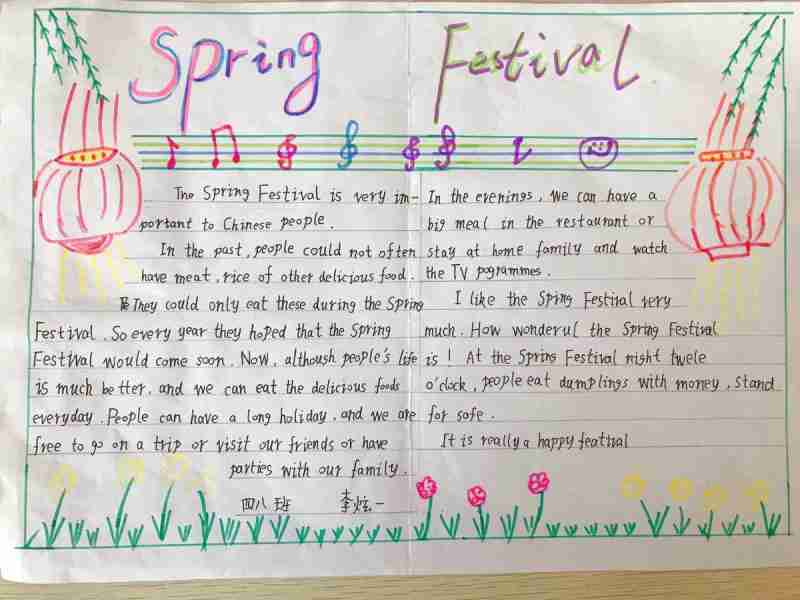 Spring Festival
The Spring Festival is very im-
portant to Chinese people.
In the past, people could not often
have meat, rice of other delicious food.
They could only eat these during the Spring
Festival. So every year they hoped that the Spring
Festival would come soon. Now, although people's life
is much better, and we can eat the delicious foods
everyday. People can have a long holiday, and we are
free to go on a trip or visit our friends or have
parties with our family.
四八班 李炫一
In the evenings, we can have a
big meal in the restaurant or
stay at home family and watch
the TV pogrammes.
I like the Spring Festival very
much. How wonderul the Spring Festival
is! At the Spring Festival night twele
o'clock, people eat dumplings with money, stand
for safe.
It is really a happy featival